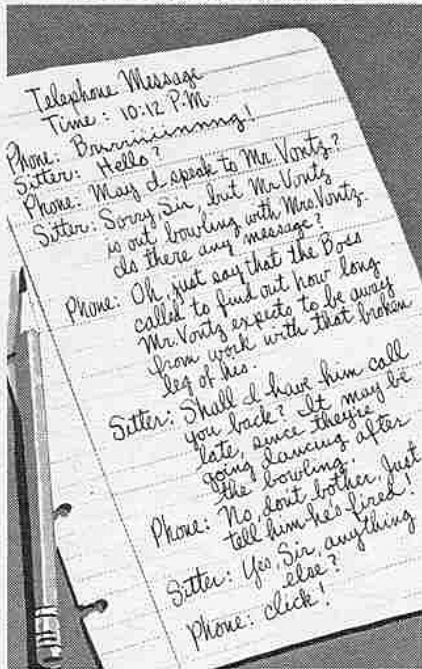 Telephone Message
Time: 10:12 P.M.
Phone: Brrriiiinnng!
Sitter: Hello?
Phone: May I speak to Mr. Vontz?
Sitter: Sorry, Sir, but Mr. Vontz
is out bowling with Mrs. Vontz.
Is there any message?
Phone: Oh, just say that the Boss
called to find out how long
Mr. Vontz expects to be away
from work with that broken
leg of his.
Sitter: Shall I have him call
you back? It may be
late, since they're
going dancing after
the bowling.
Phone: No, don't bother, just
tell him he's fired!
Sitter: Yes, Sir, anything
else?
Phone: click!